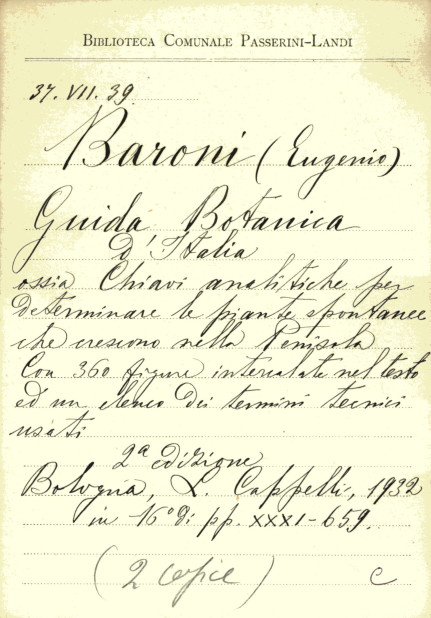 BIBLIOTECA COMUNALE PASSERINI-LANDI
37. VII. 39
Baroni (Eugenio)
Guida Botanica
D'Italia
ossia Chiavi analitiche per
determinare le piante spontanee
che crescono nella Penisola
Con 360 figure intercalate nel testo
ed un elenco dei termini tecnici
usati
2ª edizione
Bologna, L. Cappelli, 1932
in 16° di pp. XXXI-659.
(2 copie) C